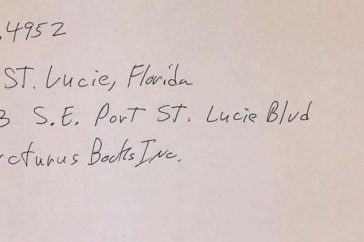 .4952
ST. Lucie, Florida
3 S.E. Port ST. Lucie Blvd
rcturus Books Inc.